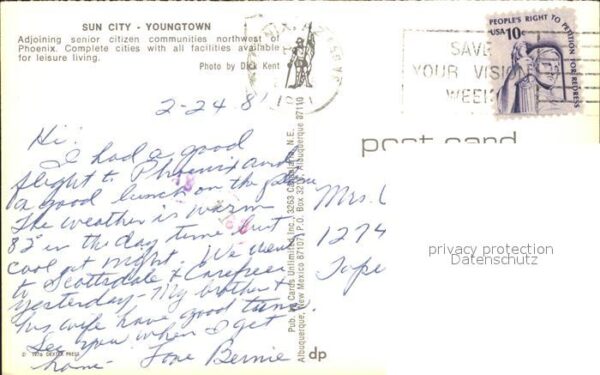 SUN CITY - YOUNGTOWN
Adjoining senior citizen communities northwest of
Phoenix. Complete cities with all facilities available
for leisure living.
Photo by Dick Kent
PEOPLE'S RIGHT TO PETITION FOR REDRESS
USA 10c
SAVE
YOUR VISION
WEEK
post card
2-24 8
Hi!
I had a good
flight to Phoenix and
a good lunch on the plane
The weather is warm
82° in the day time but
cool at night. We went
to Scottsdale & Carefree
yesterday - My brother &
his wife have good tans.
See you when I get
home -
Love Bernie
Mrs.
1274
Tope
privacy protection
Datenschutz
Pub. by Cards Unlimited, Inc., 3263 N.E., Albuquerque 87110
Albuquerque, New Mexico 87107, P.O. Box
© 1975 DEXTER PRESS
dp